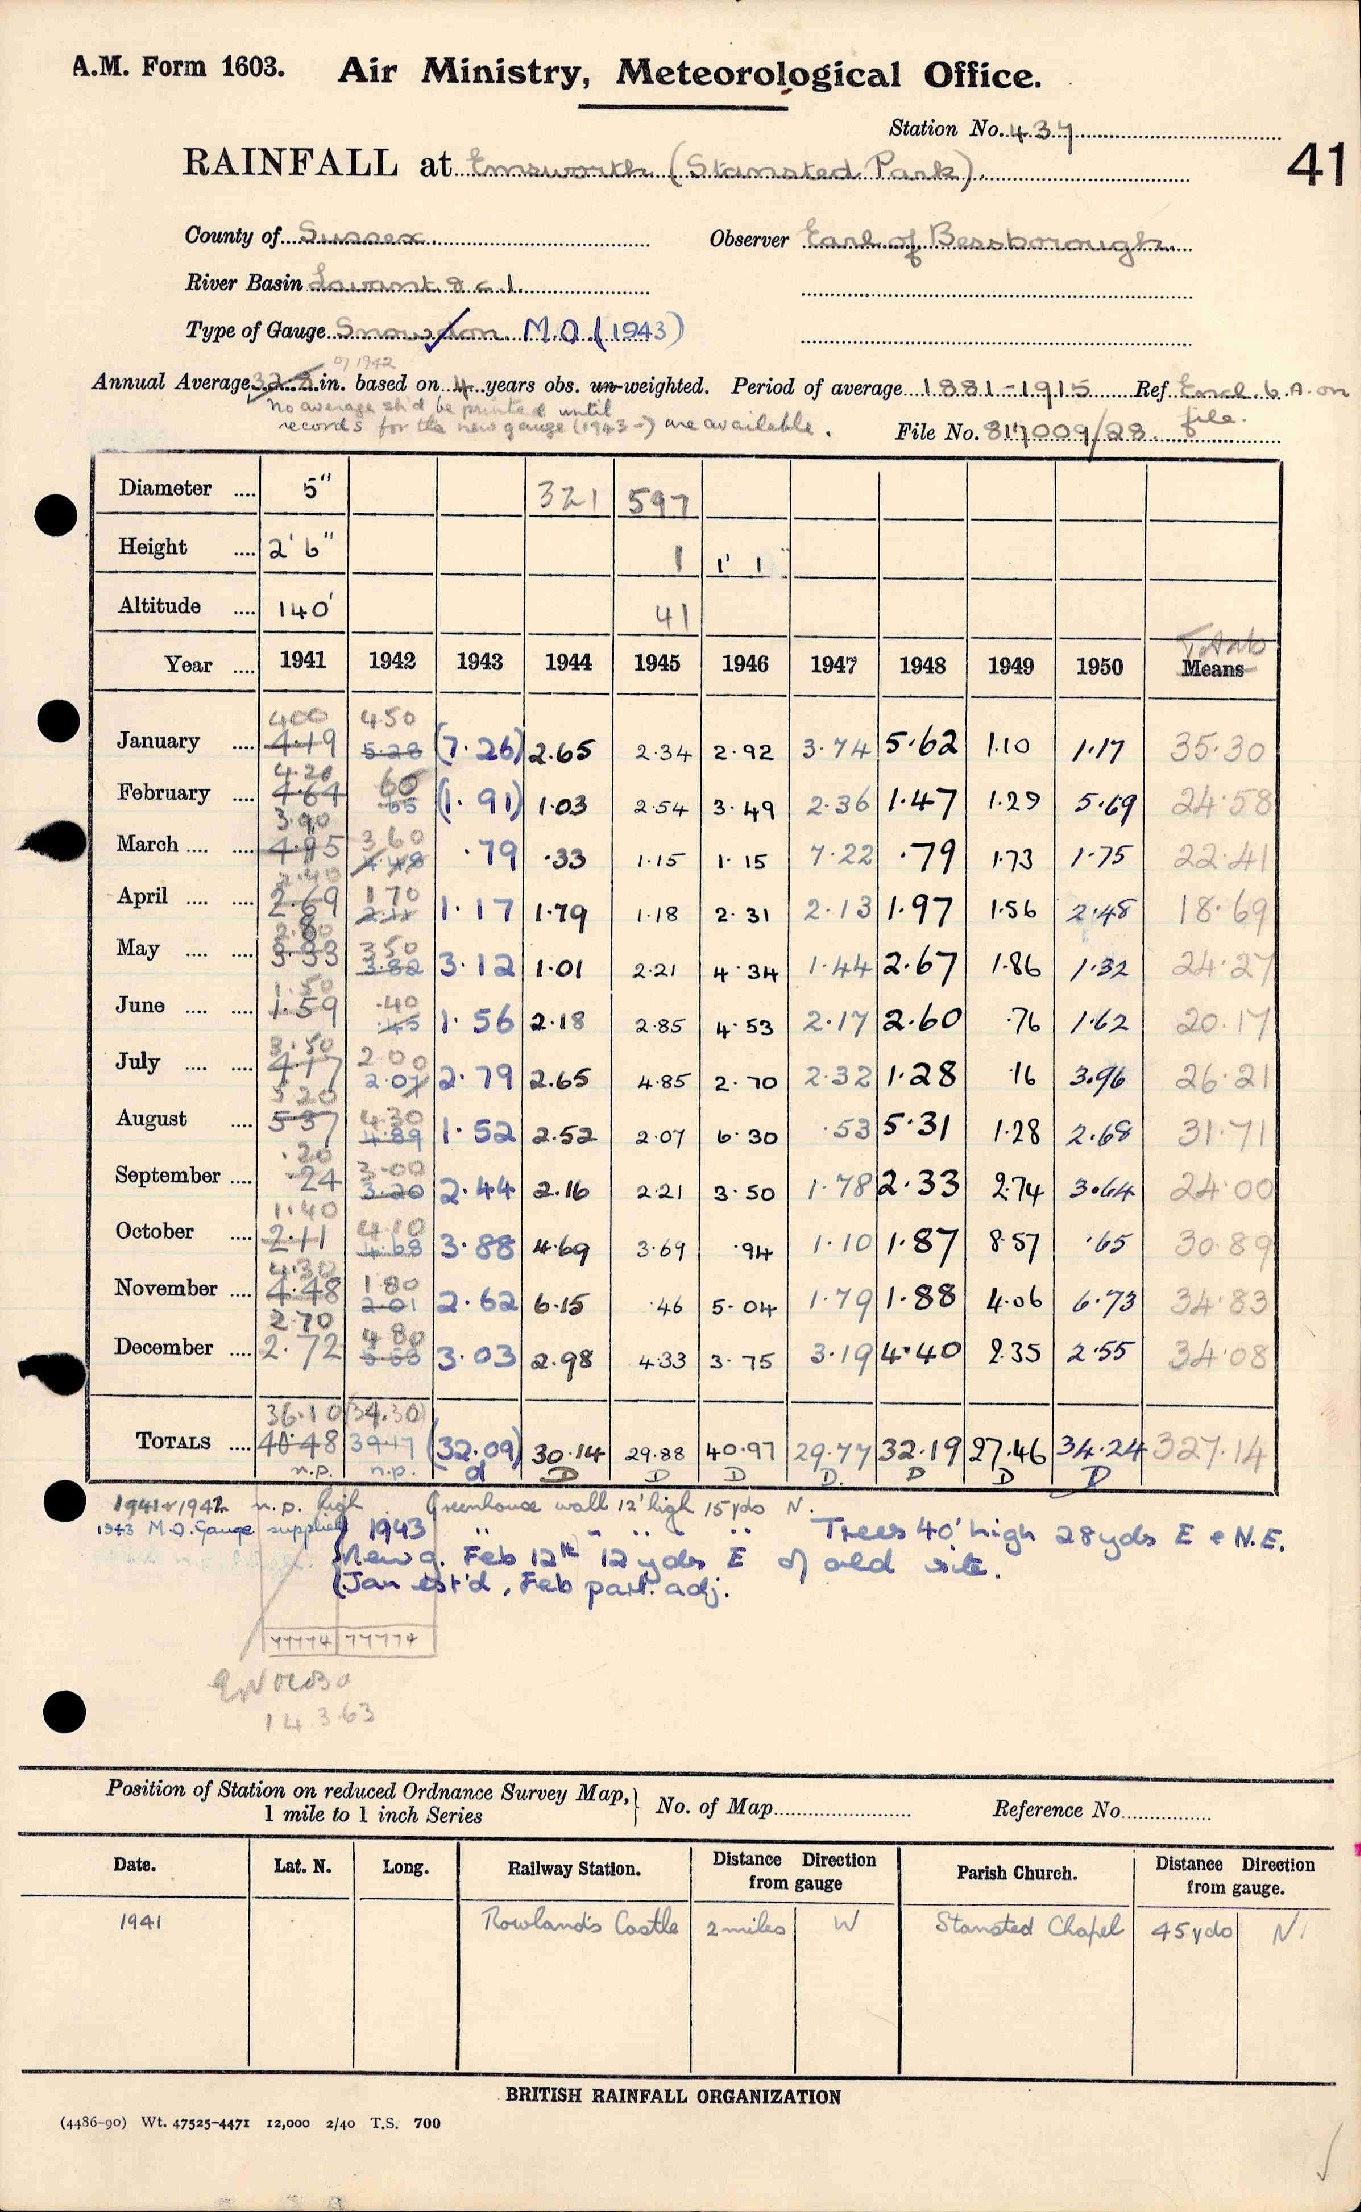 A.M. Form 1603. Air Ministry, Meteorological Office.
Station No. 437
41
RAINFALL at Emsworth (Stansted Park).
County of Sussex Observer Earl of Bessborough
River Basin Lavant & c.1.
Type of Gauge Snowdon M.O. (1943)
of 1942
Annual Average 32.2 in. based on 4 years obs. un-weighted. Period of average 1881-1915 Ref Encl. 6.A. on file.
No average sh'd be printed until
records for the new gauge (1943-) are available. File No. 817009/28
Diameter .... 5" 321 597
Height .... 2' 6" 1 1' 1"
Altitude .... 140' 41
Totals
Year .... 1941 1942 1943 1944 1945 1946 1947 1948 1949 1950 Means
4.00 4.50
January .... 4.19 5.28 (7.26) 2.65 2.34 2.92 3.74 5.62 1.10 1.17 35.30
4.20 60
February .... 4.64 .55 (1.91) 1.03 2.54 3.49 2.36 1.47 1.29 5.69 24.58
3.90 3.60
March .... .... 4.15 4.48 .79 .33 1.15 1.15 7.22 .79 1.73 1.75 22.41
2.40 1.70
April .... .... 2.69 2.11 1.17 1.79 1.18 2.31 2.13 1.97 1.56 2.48 18.69
2.80 3.50
May .... .... 3.33 3.82 3.12 1.01 2.21 4.34 1.44 2.67 1.86 1.32 24.27
1.50 .40
June .... .... 1.59 .45 1.56 2.18 2.85 4.53 2.17 2.60 .76 1.62 20.17
3.50 2.00
July .... .... 4.17 2.07 2.79 2.65 4.85 2.70 2.32 1.28 .16 3.96 26.21
5.20 4.30
August .... 5.37 4.89 1.52 2.52 2.07 6.30 .53 5.31 1.28 2.68 31.71
.20 3.00
September .... .24 3.20 2.44 2.16 2.21 3.50 1.78 2.33 2.74 3.64 24.00
1.40 4.10
October .... 2.11 4.68 3.88 4.69 3.69 .94 1.10 1.87 8.57 .65 30.89
4.30 1.80
November .... 4.48 2.01 2.62 6.15 .46 5.04 1.79 1.88 4.06 6.73 34.83
2.70 4.80
December .... 2.72 5.63 3.03 2.98 4.33 3.75 3.19 4.40 2.35 2.55 34.08
36.10 (34.30)
TOTALS .... 40.48 39.17 (32.09) 30.14 29.88 40.97 29.77 32.19 27.46 34.24 327.14
n.p. n.p. d D D D D. D D D
1941 & 1942 n.p. high Greenhouse wall 12' high 15 yds N.
1943 M.O. Gauge supplied 1943 " " " " Trees 40' high 28 yds E & N.E.
New g. Feb 12th 12 yds E of old site.
(Jan est'd, Feb part. adj.
77774 77774
14.3.63
Position of Station on reduced Ordnance Survey Map,
1 mile to 1 inch Series
No. of Map Reference No.
Date. Lat. N. Long. Railway Station. Distance from gauge Direction Parish Church. Distance from gauge. Direction
1941 Rowland's Castle 2 miles W Stansted Chapel 45 yds N.
BRITISH RAINFALL ORGANIZATION
(4486-90) Wt. 47525-4471 12,000 2/40 T.S. 700